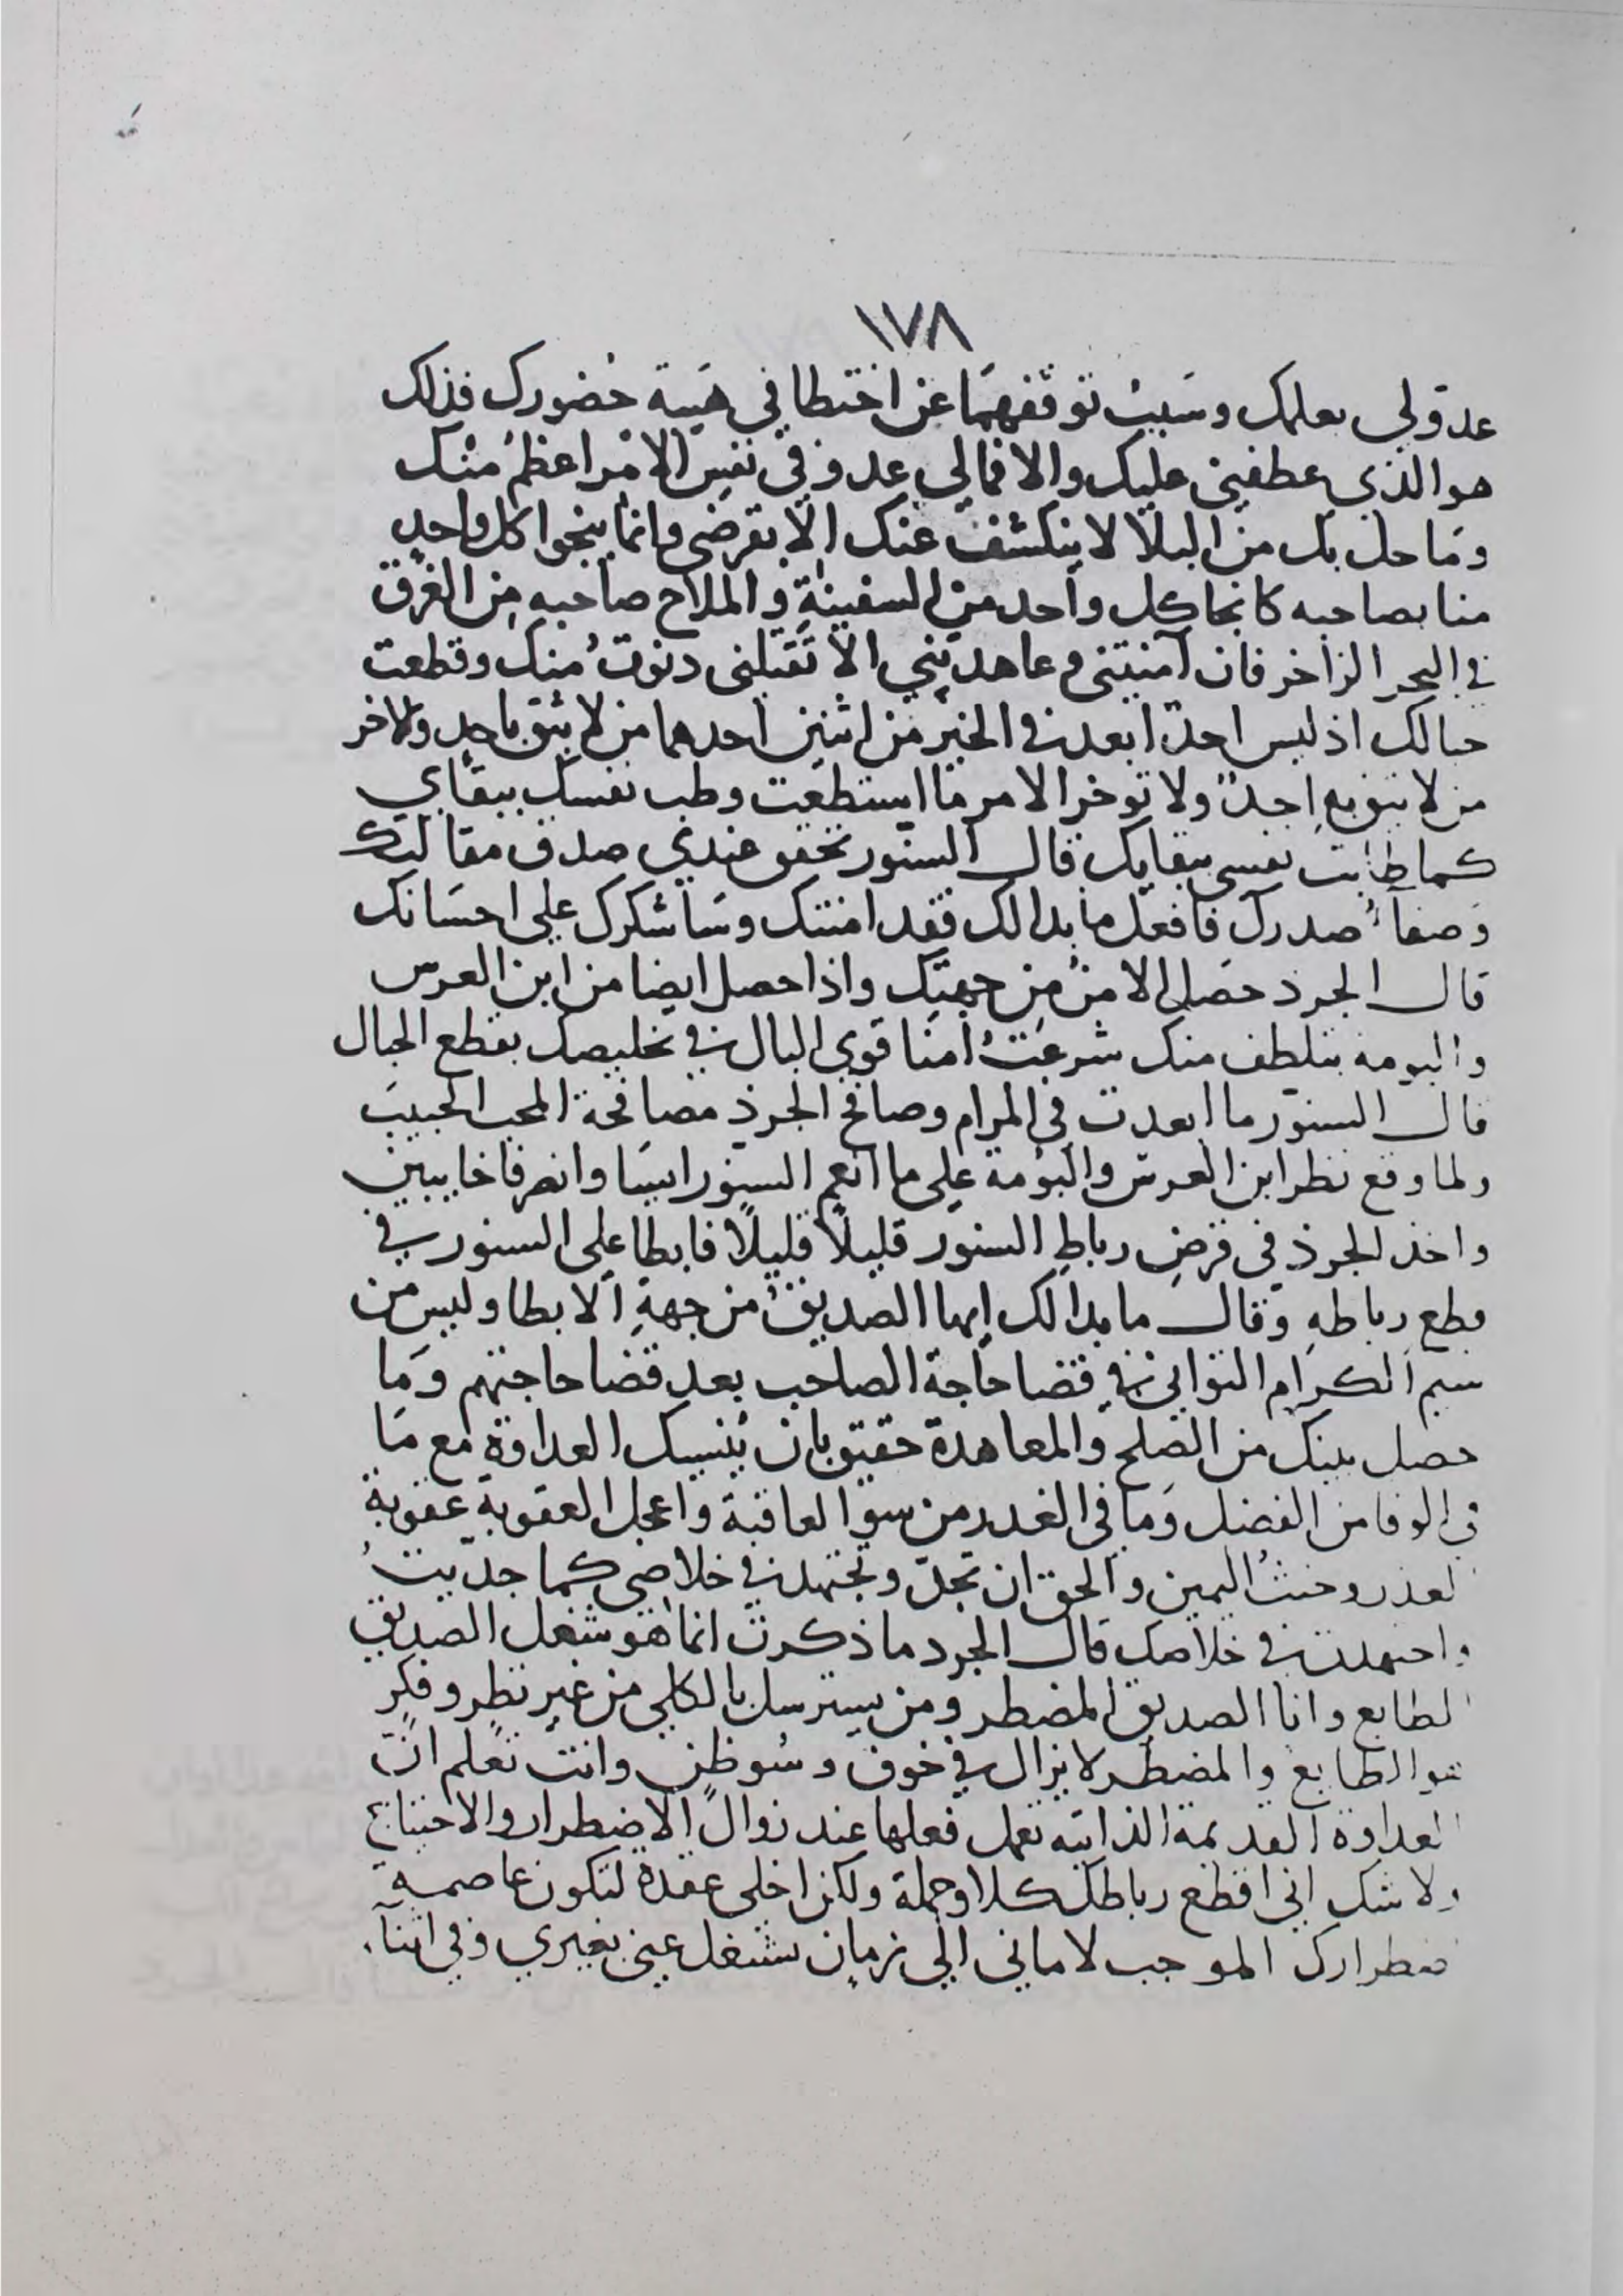 ١٧٨
عدو لي بعلمك وسبب توقفهما عن اختطافي هيبة حضورك فذلك
هو الذي عطفني عليك والا فمالي عدو في نفس الامر اعظم منك
وما حل بك من البلا لا ينكشف عنك الا بقرضي وانما ينجوا كل واحد
منا بصاحبه كما نجا كل واحد من السفينة والملاح صاحبه من الغرق
في البحر الزاخر فان آمنيتني وعاهديتني الا تقتلني دنوت منك وقطعت
حبالك اذ ليس احدٌ ابعد في الخير من اثنين احدهما من لا يثق باحد والاخر
من لا يثق به احدٌ ولا توخر الامر ما استطعت وطب نفسك ببقاي
كما طابت نفسي ببقايك قال السنور تحقق عندي صدق مقالتك
وصفآء صدرك فافعل ما بدا لك فقد امنتك وساشكرك على احسانك
قال الجرذ حصل الامن من جهتك واذا حصل ايضا من ابن العرس
والبومة بتلطف منك شرعت امنا قوي البال في تخليصك بقطع الحبال
قال السنور ما ابعدت في المرام وصافح الجرذ مصافحة المحب الحبيب
ولما وقع نظر ابن العرس والبومة على ما انعم السنور ايسا وانصرفا خايبين
واخذ الجرذ في قرض رباط السنور قليلاً قليلاً فابطا على السنور في
قطع رباطه وقال ما بدا لك ايها الصديق من جهة الابطا وليس من
شيم الكرام التواني في قضا حاجة الصاحب بعد قضا حاجتهم وما
حصل بينك من الصلح والمعاهدة حقيق بان ينسيك العداوة مع ما
في الوفا من الفضل وما في الغدر من سو العاقبة واعجل العقوبة عقوبة
الغدر وحنث اليمين والحق ان تجدّ وتجتهد في خلاصي كما جدّيت
واجتهدت في خلاصك قال الجرد ما ذكرت انما هو شغل الصديق
الطايع وانا الصديق المضطر ومن يسترسل بالكلي من غير نظر وفكر
هو الطايع والمضطر لا يزال في خوف وسو ظن وانت تعلم انّ
العداوة القديمة الذاتيه تعمل فعلها عند زوال الاضطرار والاحتياج
ولا شك اني اقطع رباطك كلا وجملة ولكن اخلي عقدة لتكون عاصمة
اضطرارك الموجب لاماني الى زمان تشغل عيني بغيري وفي اثنآء